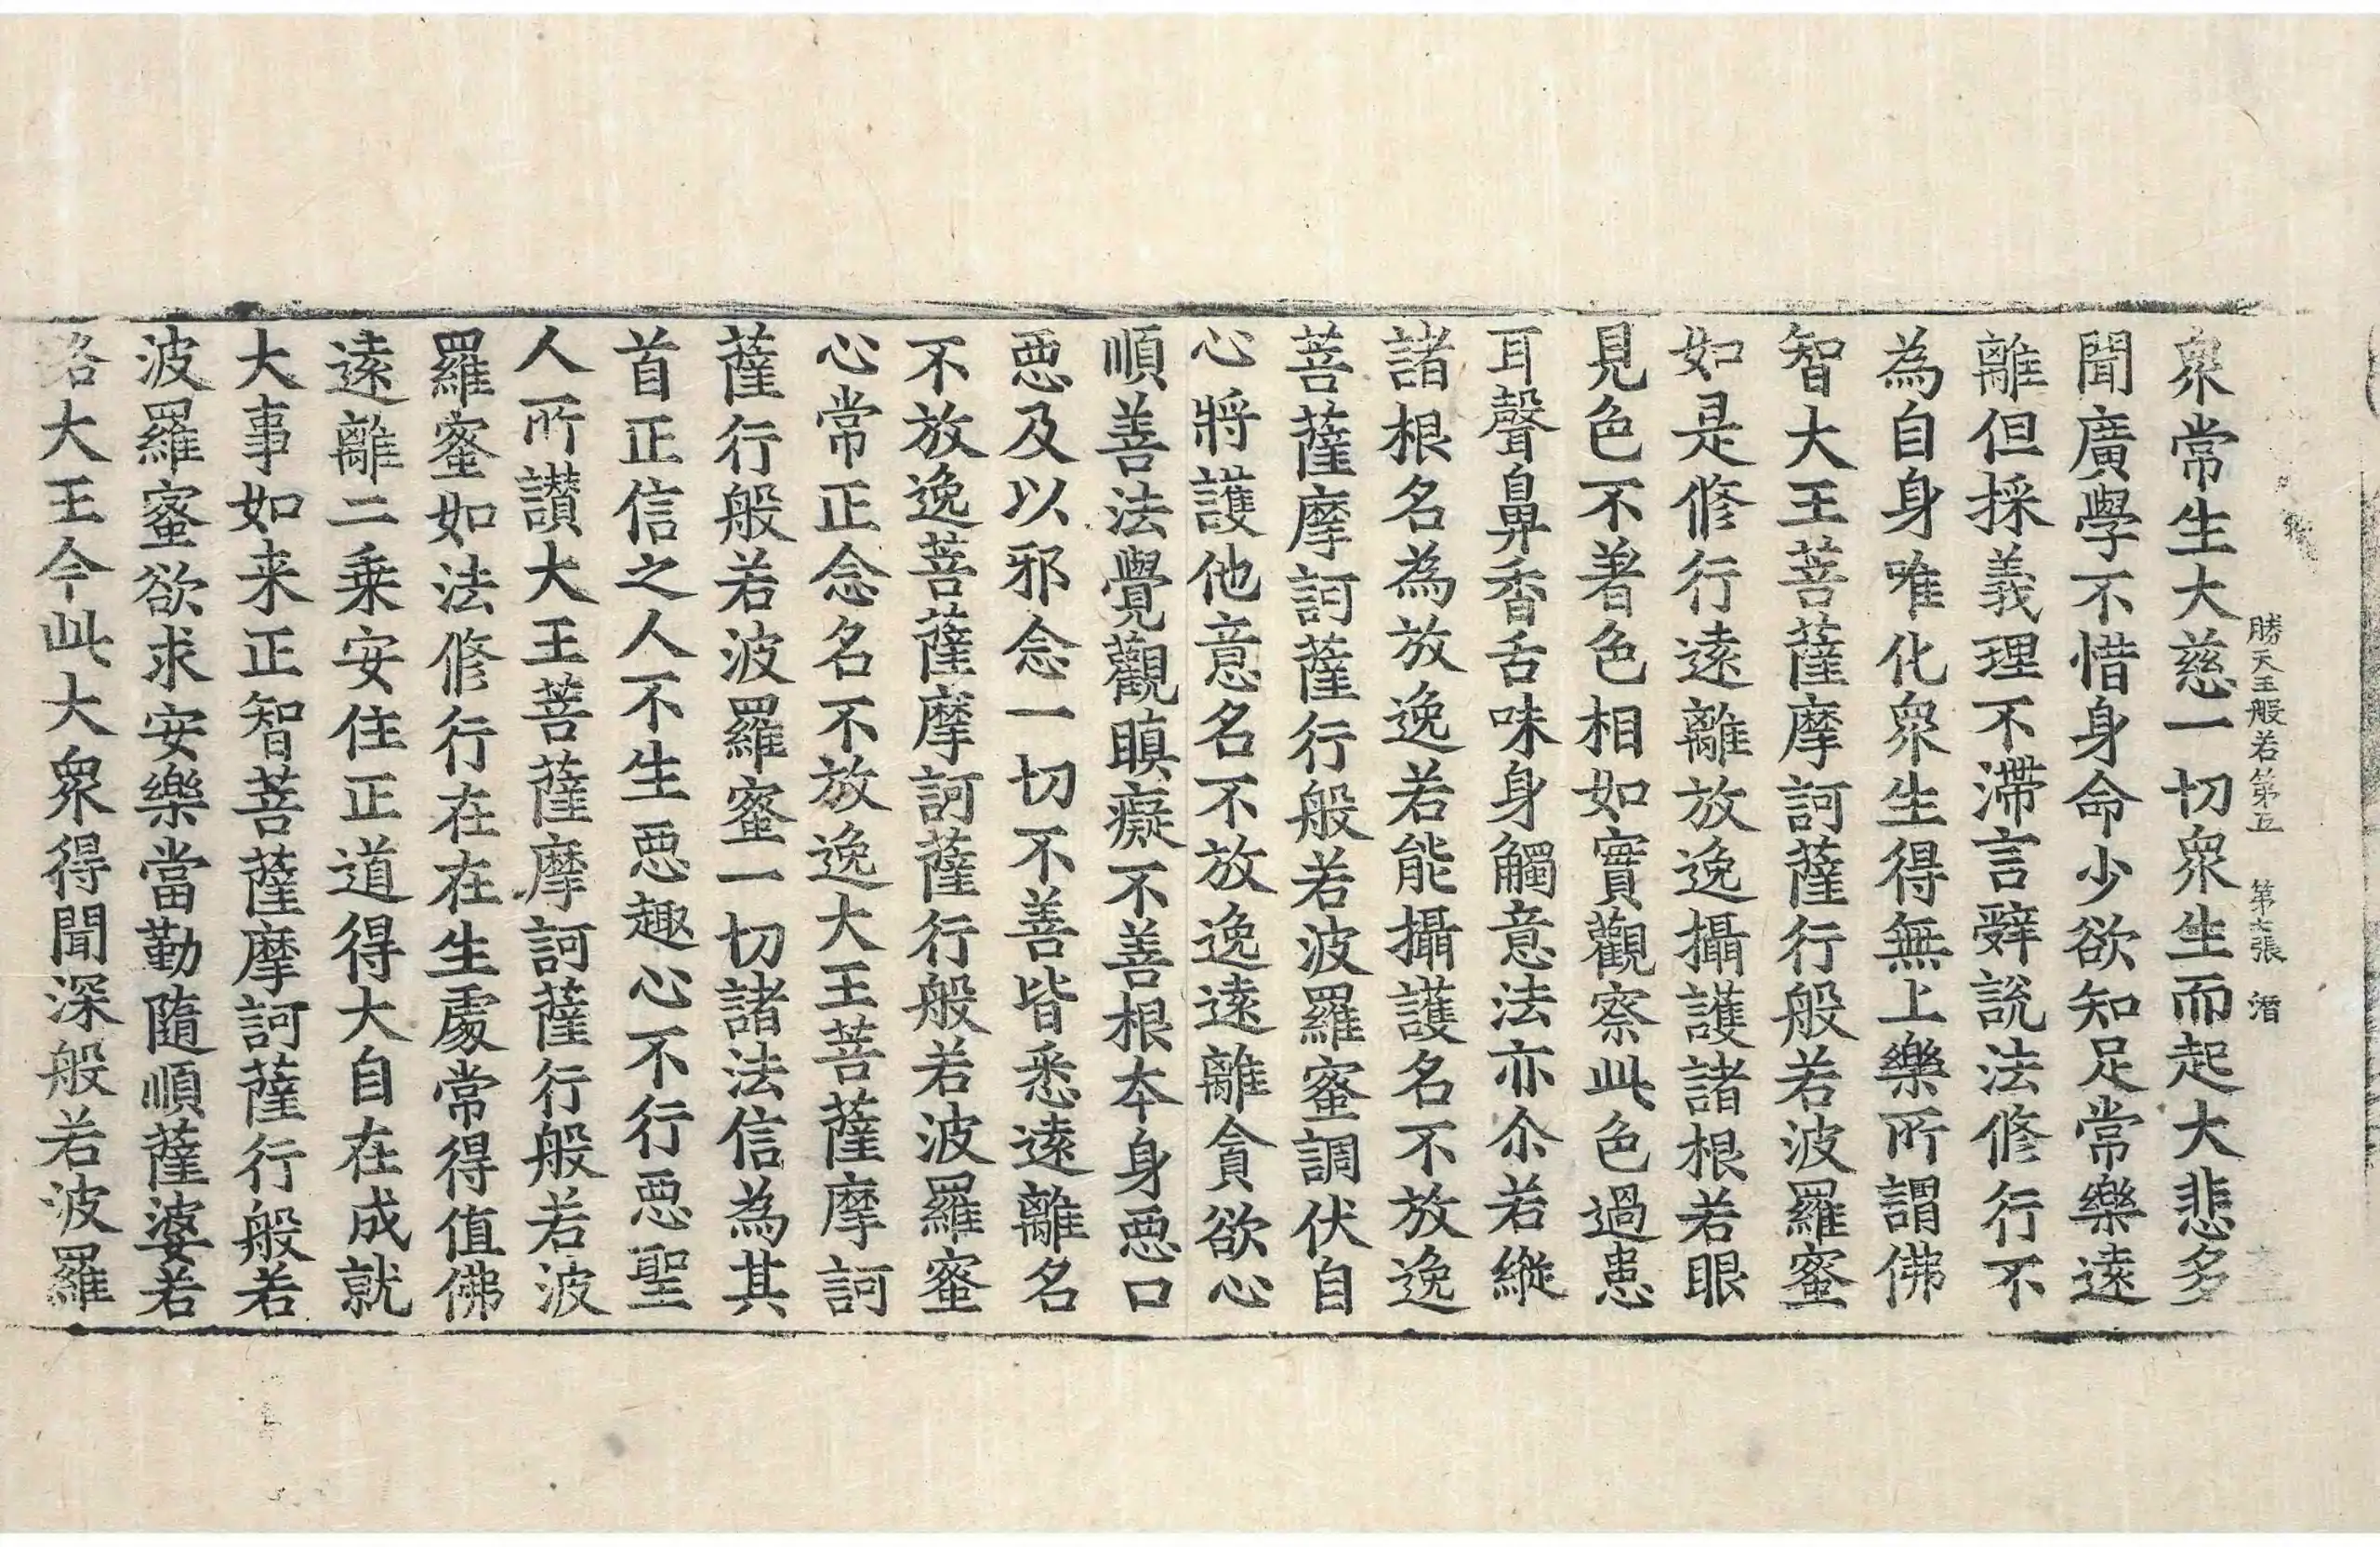 勝天王般若第五 第七張 潛
衆常生大慈一切衆生而起大悲多
聞廣學不惜身命少欲知足常樂遠
離但採義理不滯言辤說法修行不
為自身唯化衆生得無上樂所謂佛
智大王菩薩摩訶薩行般若波羅蜜
如是修行遠離放逸攝護諸根若眼
見色不著色相如實觀察此色過患
耳聲鼻香舌味身觸意法亦尒若縱
諸根名為放逸若能攝護名不放逸
菩薩摩訶薩行般若波羅蜜調伏自
心將護他意名不放逸遠離貪欲心
順善法覺觀瞋癡不善根本身惡口
惡及以邪念一切不善皆悉遠離名
不放逸菩薩摩訶薩行般若波羅蜜
心常正念名不放逸大王菩薩摩訶
薩行般若波羅蜜一切諸法信為其
首正信之人不生惡趣心不行惡聖
人所讃大王菩薩摩訶薩行般若波
羅蜜如法修行在在生處常得值佛
遠離二乘安住正道得大自在成就
大事如来正智菩薩摩訶薩行般若
波羅蜜欲求安樂當勤隨順薩婆若
路大王今此大衆得聞深般若波羅